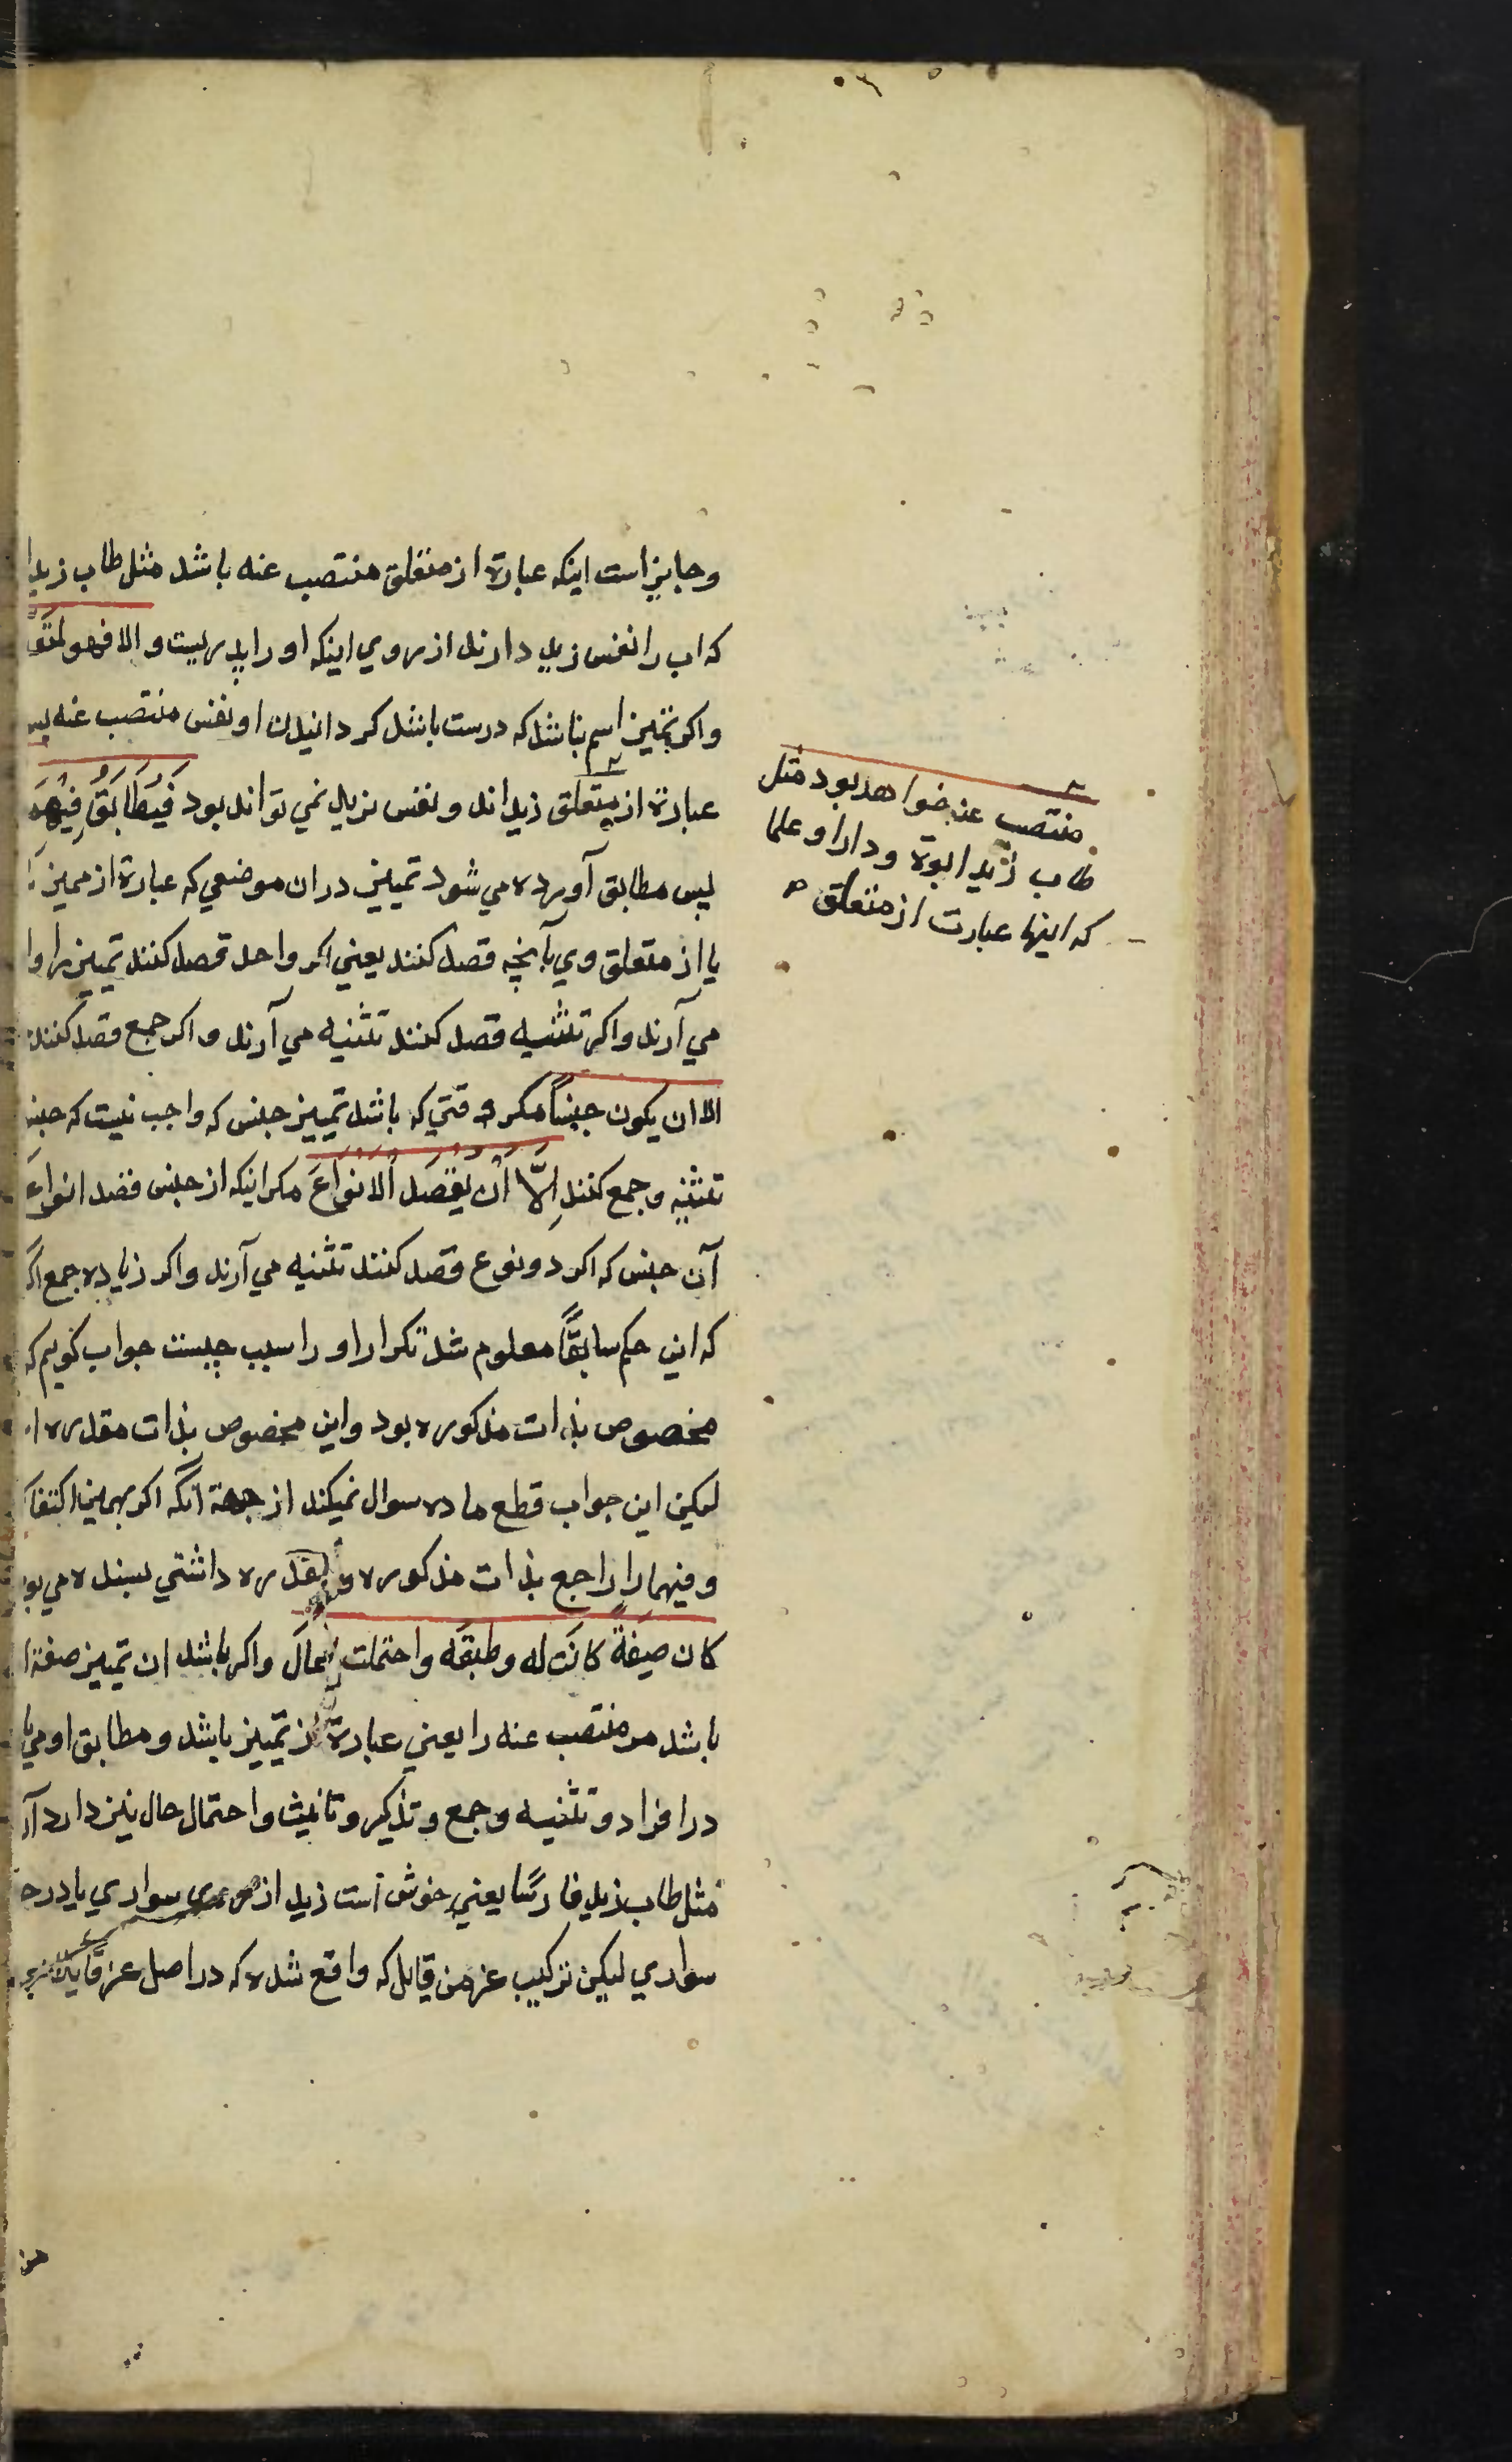 وجایز است اینکه عبارة از متعلق منتصب عنه باشد مثل طاب زید
که اب را نفس زید دارند از روی اینکه او را پدریست والا فهو لمتع
واکر تمیز اسم نباشد که درست باشد کردانیدن او نفس منتصب عنه پس
عبارة از متعلق زید اند و نفس زید نمی تواند بود فَیُطَابَقُ فِیْهِمَ
پس مطابق آورده می شود تمییز در ان موضعی که عبارة از ممیز
یا از متعلق وی بآنچه قصد کنند یعنی اکر واحد قصد کنند تمییز را وا
می آرند واکر تثنیه قصد کنند تثنیه می آرند واکر جمع قصد کنند
الا ان یکون جنساً مکر وقتی که باشد تمییز جنس که واجب نیست که جنس
تثنیه وجمع کنند اِلَّا اَنْ یُقْصَدَ اَلانوَاعَ مکر اینکه از جنس قصد انواع
آن جنس که اکر دو نوع قصد کنند تثنیه می آرند واکر زیاده جمع اکر
که این حکم سابقًا معلوم شد تکرار او را سبب چیست جواب کوییم که
مخصوص بذات مذکوره بود واین مخصوص بذات مقدره
لیکن این جواب قطع ماده سوال نمیکند از جهة انکه اکر بهمین اکتفا
وفیهما را راجع بذات مذکوره و مقدره داشتی بسنده می بو
کان صفةً کانت له وطبقه واحتملت الحال واکر باشد ان تمییز صفة
باشد مر منتصب عنه را یعنی عبارة از تمییز باشد ومطابق او می با
در افراد وتثنیه وجمع وتذکیر وتانیث واحتمال حال نیز دارد
مثل طاب زید فارسًا یعنی خوش است زید از روی سواری یا در حا
سواری لیکن ترکیب عز من قایل که واقع شده که در اصل عز قایلا
منتصب عنه خواهد بود مثل
طاب زید ابوة ودارا وعلما
که اینها عبارت از متعلق